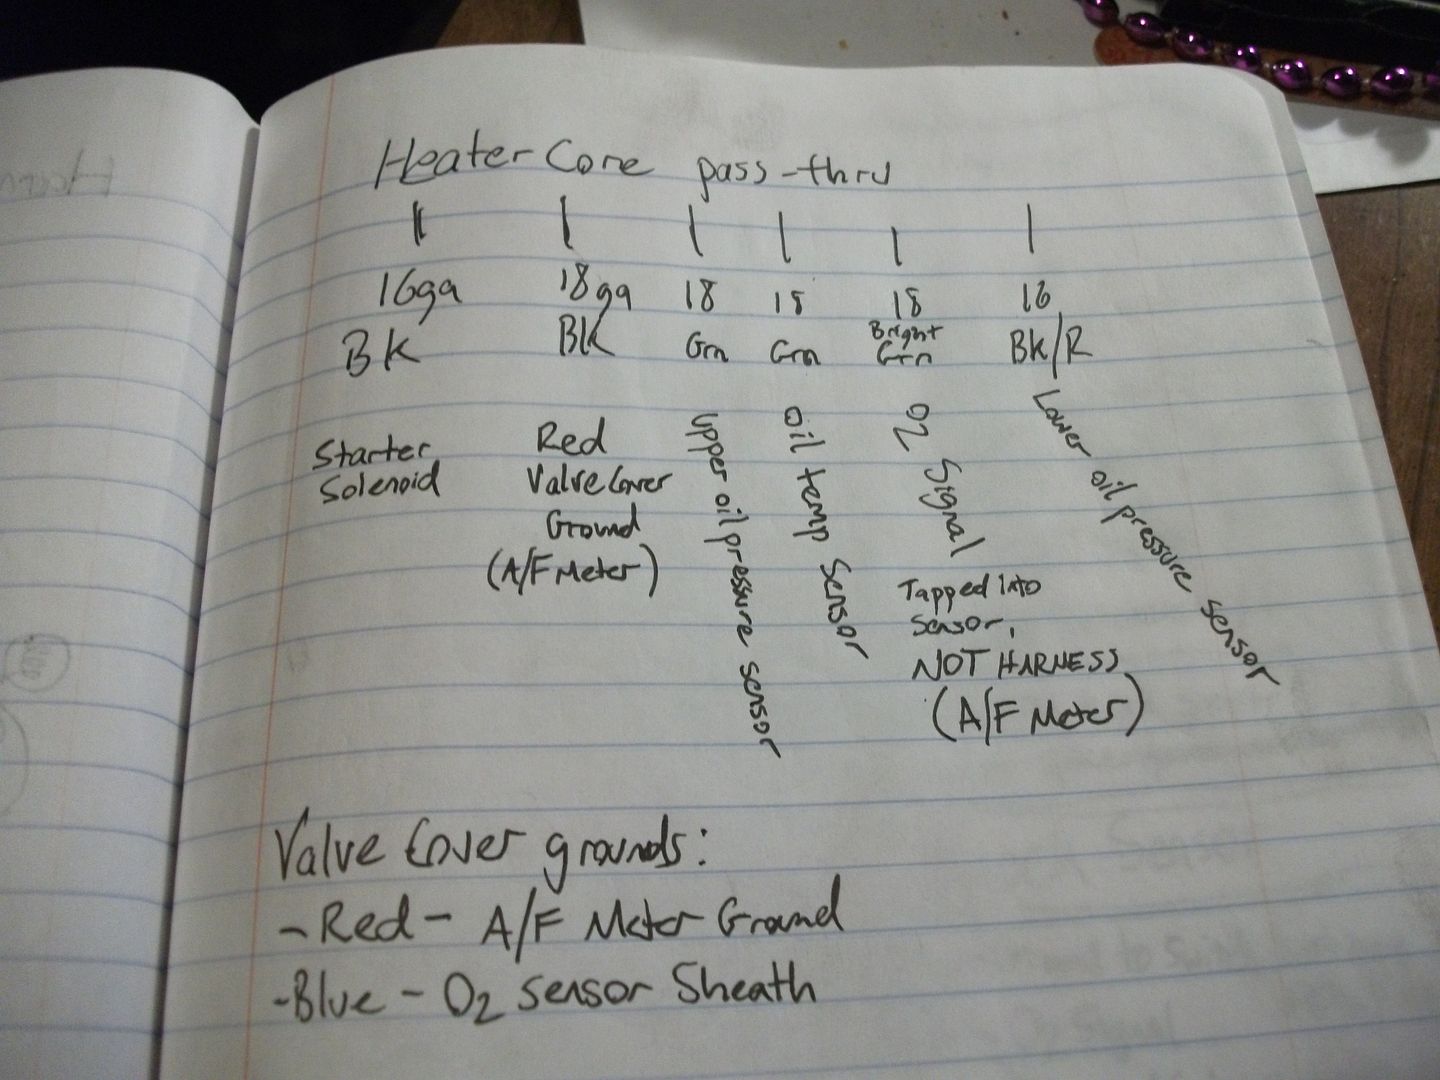 Heater Core pass-thru
16ga 18ga 18 18 18 16
BK BK Grn Grn Bright Grn BK/R
Starter Solenoid
Red Valve Cover Ground (A/F Meter)
Upper oil pressure sensor
Oil temp Sensor
O2 Signal
Tapped into
Sensor,
NOT HARNESS
(A/F Meter)
Lower oil pressure sensor
Valve Cover grounds:
- Red - A/F Meter Ground
- Blue - O2 sensor Sheath